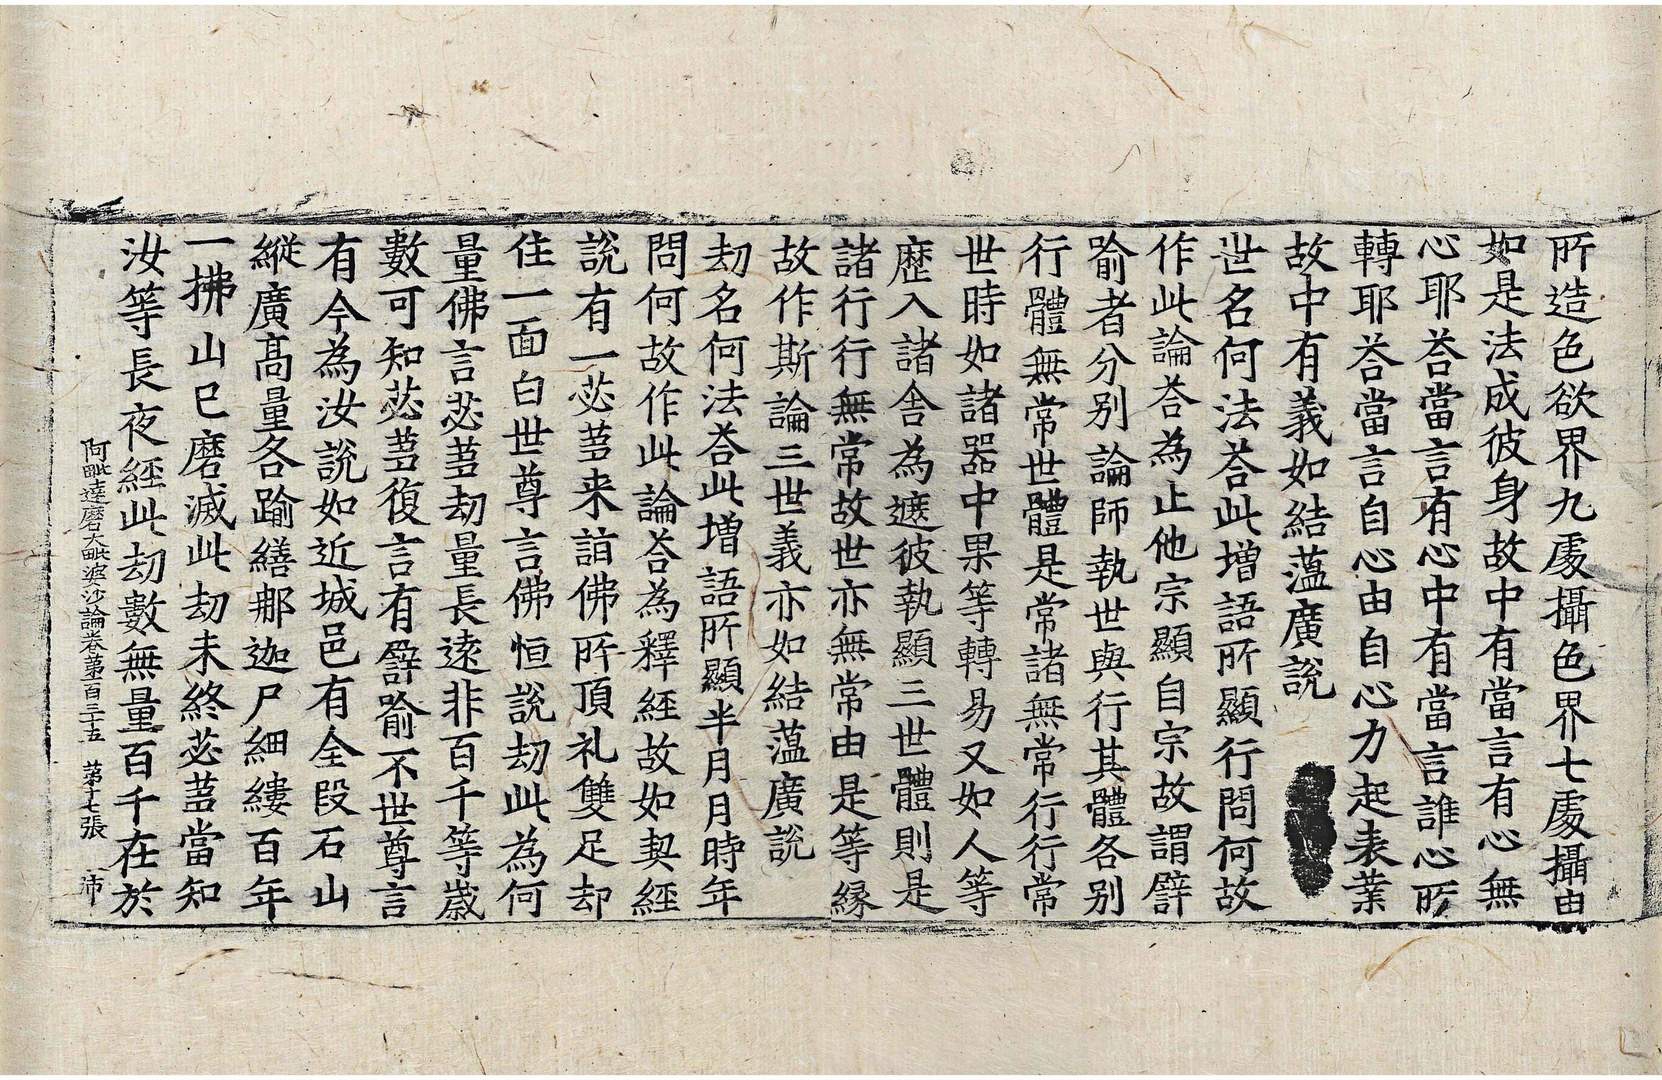 所造色欲界九處攝色界七處攝由
如是法成彼身故中有當言有心無
心耶荅當言有心中有當言誰心所
轉耶荅當言自心由自心力起表業
故中有義如結薀廣說
世名何法荅此增語所顯行問何故
作此論荅為止他宗顯自宗故謂譬
喻者分別論師執世與行其體各別
行體無常世體是常諸無常行行常
世時如諸器中果等轉易又如人等
歷入諸舍為遮彼執顯三世體則是
諸行行無常故世亦無常由是等緣
故作斯論三世義亦如結薀廣說
劫名何法荅此增語所顯半月月時年
問何故作此論荅為釋經故如契經
說有一苾蒭来詣佛所頂礼雙足却
住一面白世尊言佛恒說劫此為何
量佛言苾蒭劫量長遠非百千等歲
數可知苾蒭復言有譬喻不世尊言
有今為汝說如近城邑有全段石山
縱廣髙量各踰繕那迦尸細縷百年
一拂山已磨滅此劫未終苾蒭當知
汝等長夜經此劫數無量百千在於
阿毗達磨大毗婆沙論卷第百三十五 第十七張 沛